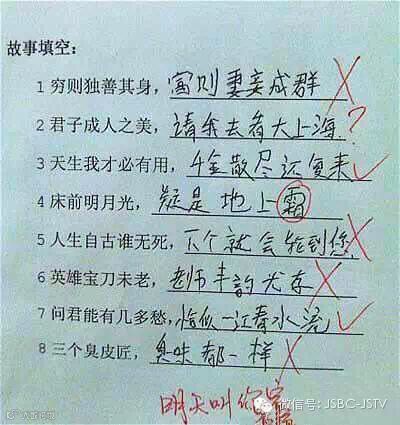 故事填空：
1 穷则独善其身，富则妻妾成群
2 君子成人之美，请我去看大上海.?
3 天生我才必有用，千金散尽还复来
4 床前明月光，疑是地上霜
5 人生自古谁无死，下个就会轮到您
6 英雄宝刀未老，老师丰韵犹存
7 问君能有几多愁，恰似一江春水流
8 三个臭皮匠，臭味都一样
明天叫你
微信号: JSBC-JSTV